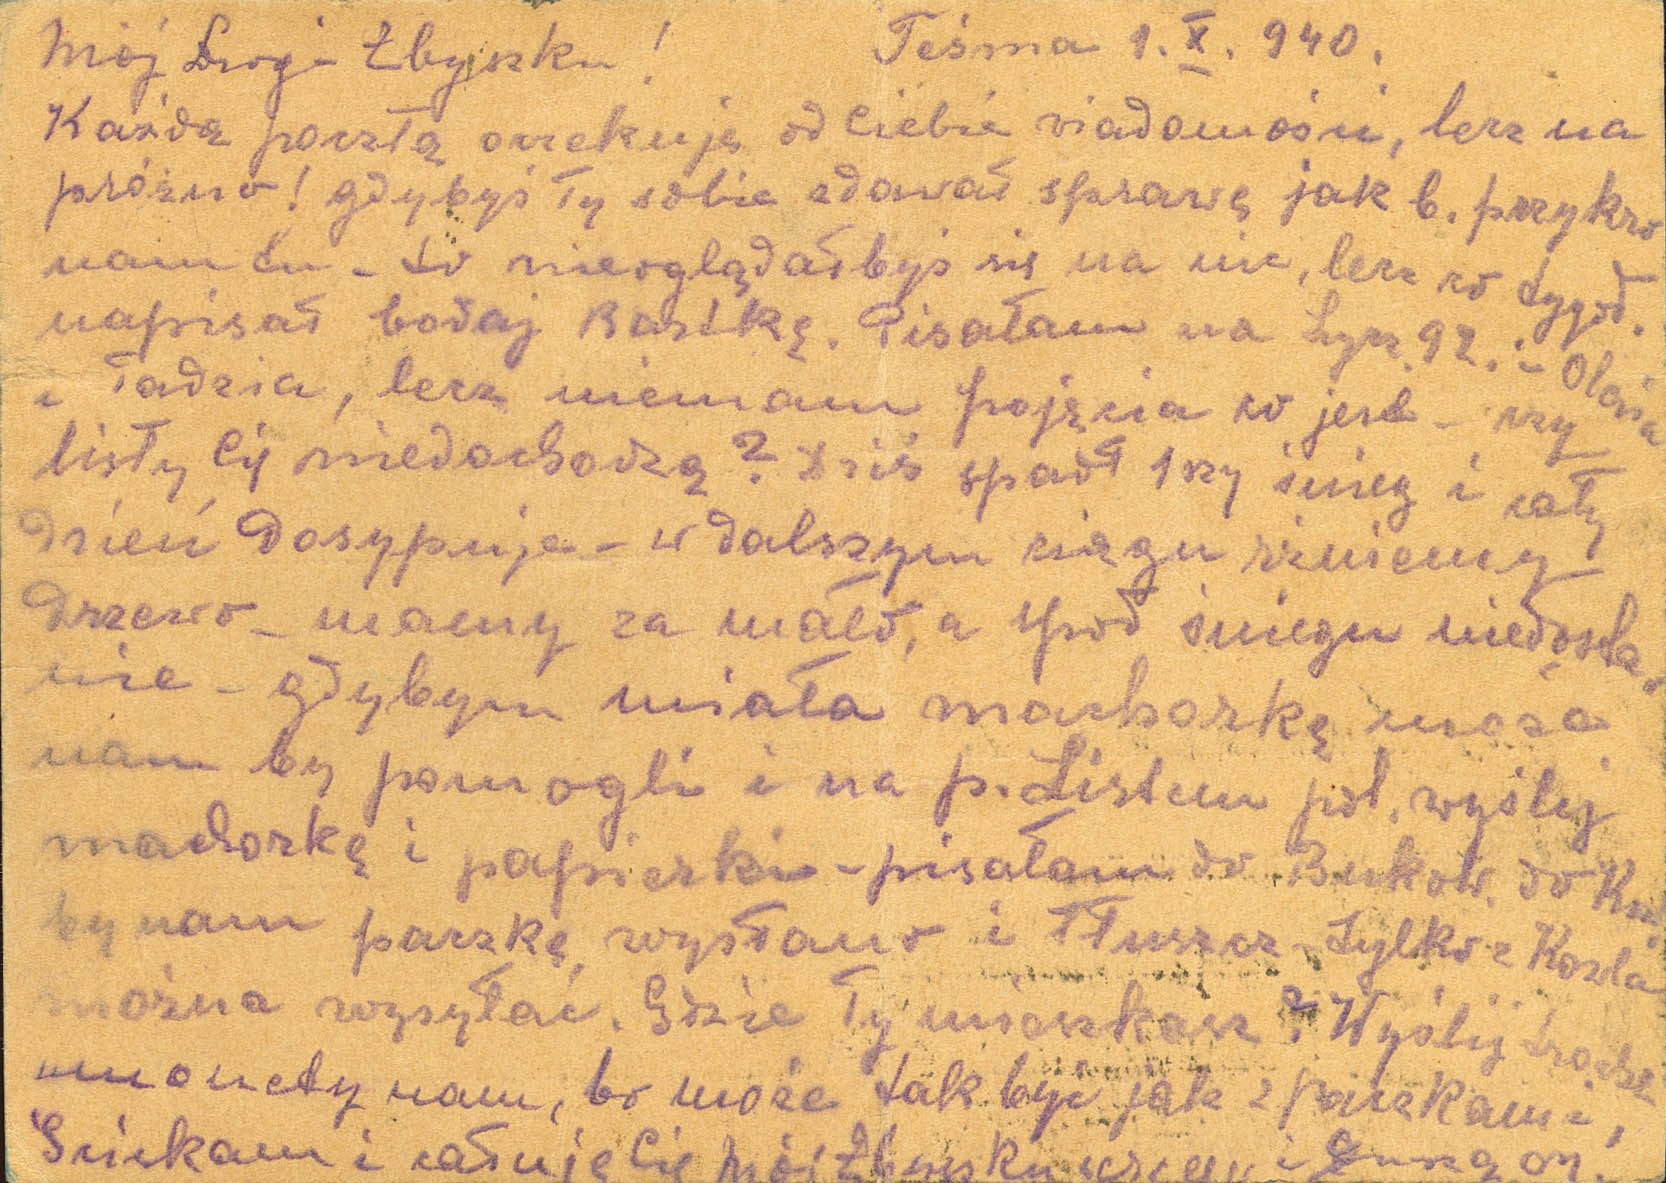 Mój Drogi Zbyszku! Teśma 1.X.940.
Każdą pocztą oczekuję od Ciebie wiadomości, lecz na
próżno! gdybyś Ty sobie zdawał sprawę jak b. przykro
nam tu - to nieoglądałbyś się na nic, lecz co tygod.
napisał bodaj kartkę. Pisałam na Łycz. 92. i Olesia
i Tadzia, lecz niemam pojęcia co jest - czy
listy Cij niedochodzą? Dziś spadł 1szy śnieg i cały
dzień dosypuje - w dalszym ciągu rżniemy
drzewo - mamy za mało, a spod śniegu niedosta-
nie - gdybym miała machorkę może
nam by pomogli i na p. Listem pol. wyślij
machorkę i papierki - pisałam do Bukow. do
by nam paczkę wysłano i tłuszcz - tylko z
można wysyłać. Gdzie Ty mieszkasz? Wyślij trochę
monety nam, bo może tak być jak z paczkami,
Ściskam i całuję Cię mój Zbyszku i